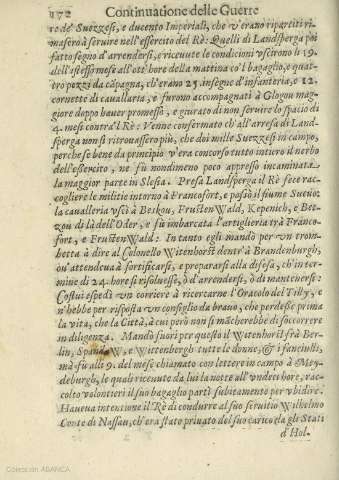 172 Continuatione delle Guerre
re de' Suezzesi, e ducento Imperiali, che v'erano ripartiti ri-
masero à seruire nell'essercito del Rè: Quelli di Landsperga poi
fatto segno d'arrendersi, e riceuute le condicioni vscirono li 19.
dell'istesso mese all'ott' hore della mattina co'l bagaglio, e quat-
tro pezzi da cãpagna, ch'erano 25. insegne d'infanteria, e 12.
cornette di cauallaria, e furono accompagnati à Glogau mag-
giore doppo hauer promesso, e giurato di non seruire lo spacio di
4. mesi contra'l Rè: Venne confermato ch'all'arresa di Land-
sperga non si ritrouassero più, che doi mille Suezzesi in campo,
perche se bene da principio v'era concorso tutto intiero il nerbo
dell'essercito, ne fù nondimeno poco appresso incaminata
la maggior parte in Slesia. Presa Landsperga il Rè fece rac-
cogliere le militie intorno à Francofort, e possò il fiume Sueuo:
la cauallaria vscì à Beskou, FrustenWald, Kepenich, e Bet-
zou di là dell'Oder, e fù imbarcata l'artiglieria trà Franco-
fort, e FrustenWald: In tanto egli mandò per vn trom-
betta à dire al Colonello Witenhorst dentr'à Brandenburgh,
ou'attendeua à fortificarsi, e prepararsi alla difesa, ch'in ter-
mine di 24. hore si risoluesse, ò d'arrendersi, ò di mantenerse:
Costui espedì vn corriere à ricercarne l'Oracolo del Tilly, e
n'hebbe per risposta vn consiglio da brauo, che perdesse prima
la vita, che la Città, à cui però non si mãcherebbe di soccorrere
in diligenza. Mandò fuori per questo il Witenhorst frà Ber-
lin, Spandow, e Wittenbergh tutte le donne, & i fanciulli,
mà fù alli 9. del mese chiamato con lettere in campo à Mey-
deburgh, le quali riceuute da lui la notte all'vndeci hore, rac-
colto volontieri il suo bagaglio partì subitamente per vbidire.
Haueua intentione il Rè di condurre al suo seruitio Wilhelmo
Conte di Nassau, ch'era stato priuato del suo carico da gli Stati
d'Hol-
Colección ABANCA